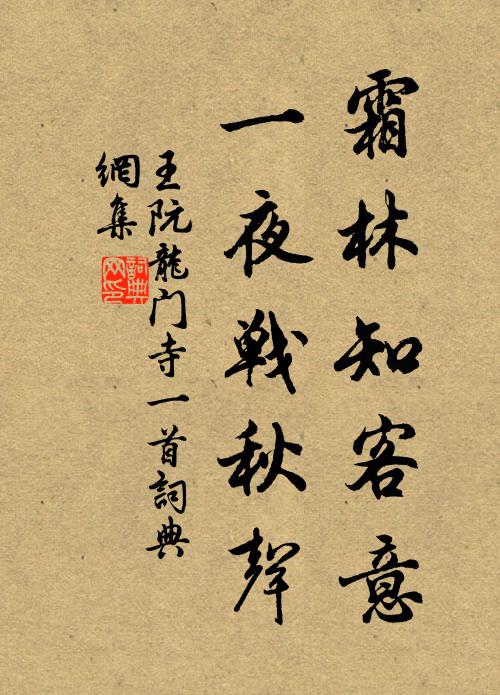 霜林知客意
一夜戰秋聲
王阮龍门寺一首詞典
網集
詞典
网印